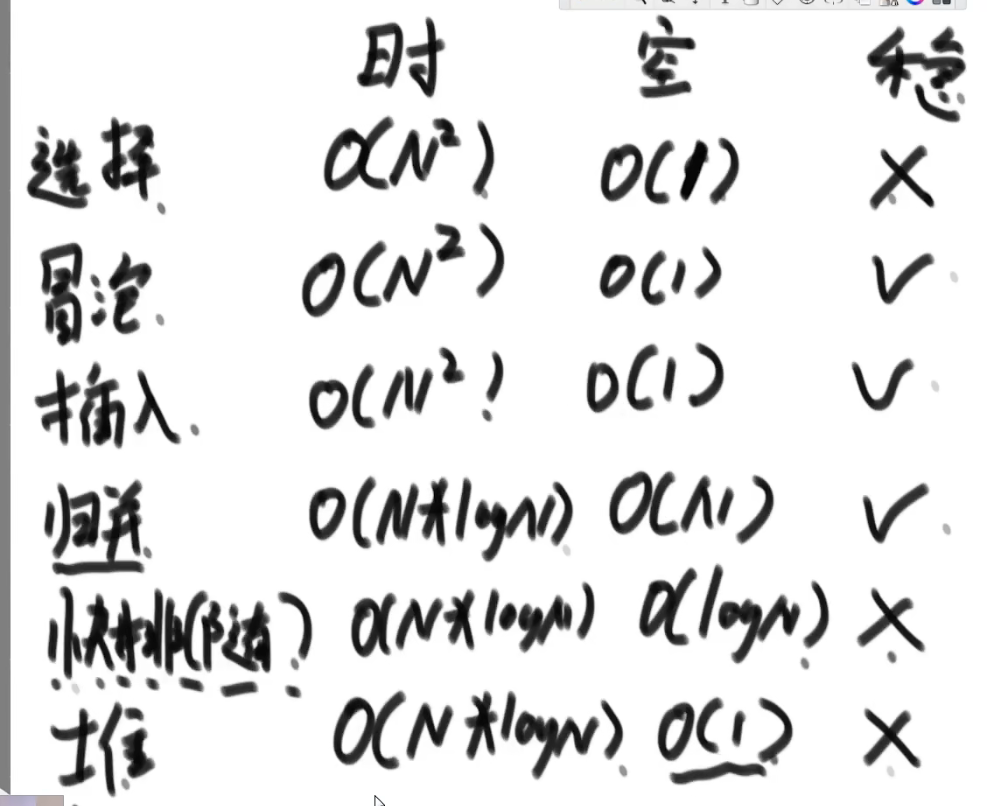 时 空 稳
选择 O(N²) O(1) X
冒泡 O(N²) O(1) √
插入 O(N²) O(1) √
归并 O(N*logN) O(N) √
快排(随) O(N*logN) O(logN) X
堆 O(N*logN) O(1) X